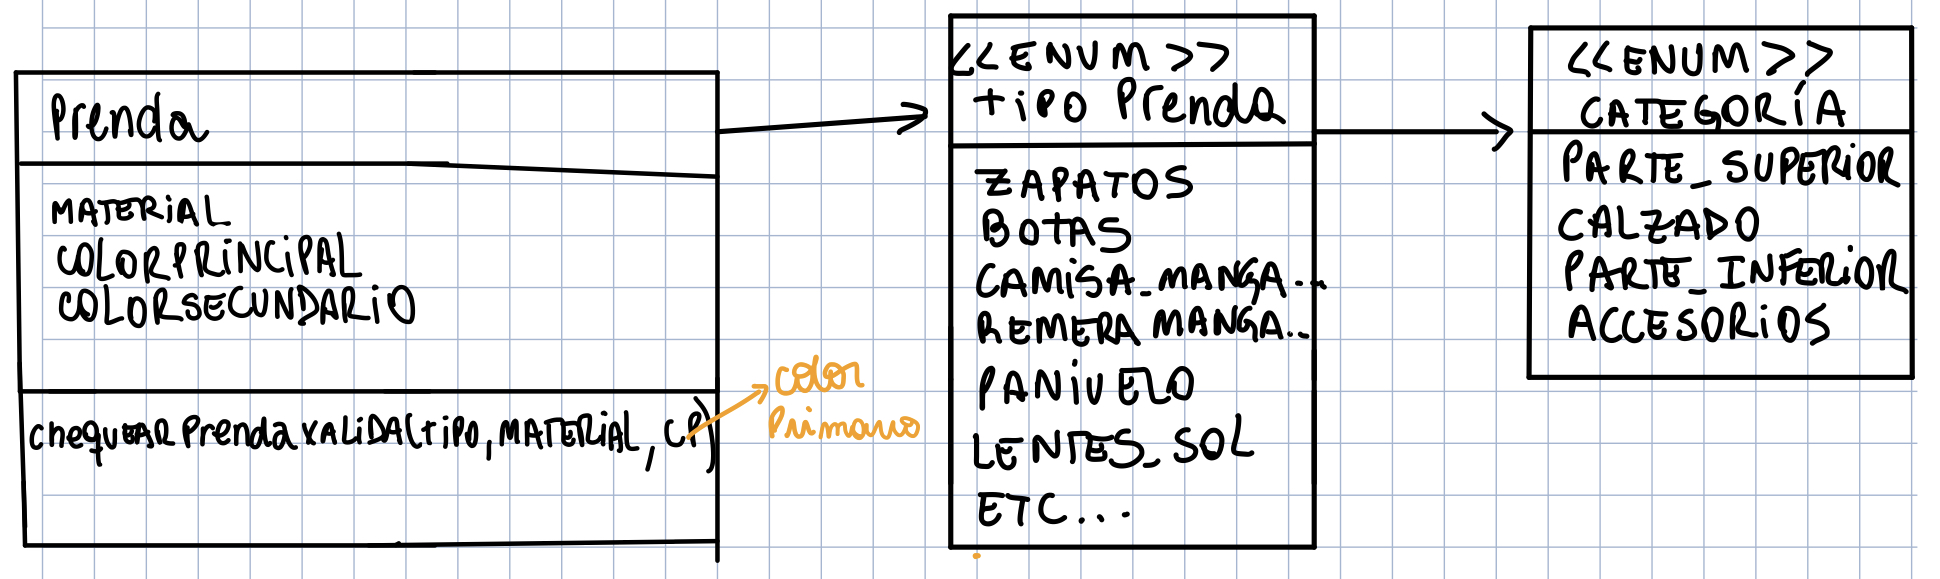 Prenda
MATERIAL
COLORPRINCIPAL
COLORSECUNDARIO
chequEAR PrendaVALIDA(tiPO, MATERIAL, CP)
color
Primario
<<ENUM>>
tipo Prenda
ZAPATOS
BOTAS
CAMISA_MANGA...
REMERA MANGA...
PANIUELO
LENTES_SOL
ETC...
<<ENUM>>
CATEGORÍA
PARTE_SUPERIOR
CALZADO
PARTE_INFERIOR
ACCESORIOS